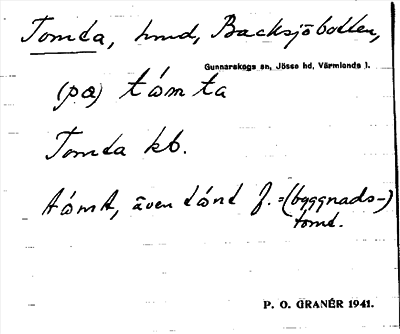 Tomta, hmd, Backsjöbotten,
Gunnarskogs sn, Jösse hd, Värmlands l.
(pα) tȯmta
Tomta kb.
tȯmt, även tȯnt f. =(byggnads-)
tomt.
P. O. GRANÉR 1941.